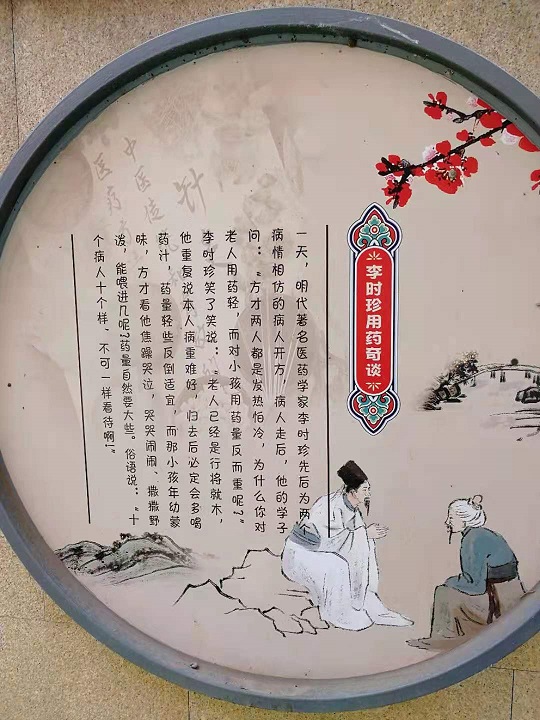 李时珍用药奇谈
一天，明代著名医药学家李时珍先后为两
病情相仿的病人开方，病人走后，他的学子
问：“方才两人都是发热怕冷，为什么你对
老人用药轻，而对小孩用药量反而重呢？”
李时珍笑了笑说：“老人已经是行将就木，
他重复说本人病重难好，归去后必定会多喝
药汁，药量轻些反倒适宜，而那小孩年幼蒙
昧，方才看他焦躁哭泣，哭哭闹闹、撒撒野
泼，能喂进几呢?药量自然要大些。俗语说：“十
个病人十个样，不可一样看待啊！”
针
中医
医疗